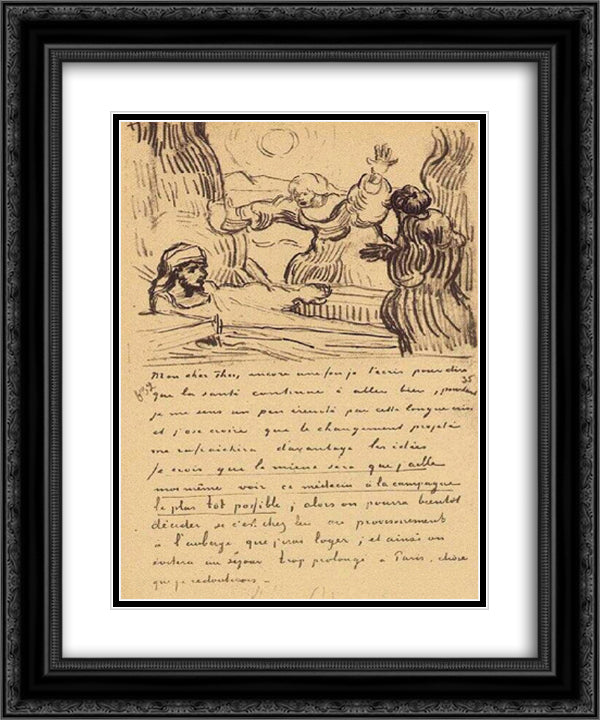 Mon cher Theo, encore une fois je t'écris pour dire
que la santé continue à aller bien, pourtant
je me sens un peu éreinté par cette longue crise
et j'ose croire que le changement projeté
me rafraichira davantage les idées
Je crois que le mieux sera que j'aille
moi même voir ce médecin à la campagne
le plus tôt possible; alors on pourra bientôt
décider si c'est chez lui ou provisoirement
à l'auberge que j'irai loger; et ainsi on
évitera un séjour trop prolongé à Paris, chose
que je redouterais -
35